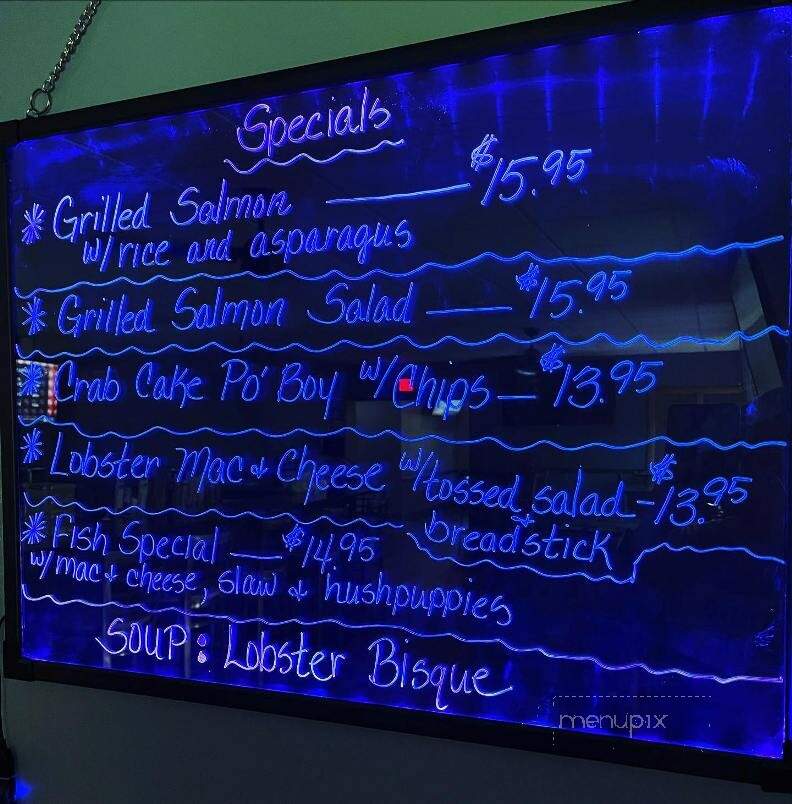 Specials
* Grilled Salmon — $15.95
w/ rice and asparagus
* Grilled Salmon Salad — $15.95
* Crab Cake Po' Boy w/ Chips — $13.95
* Lobster Mac & Cheese w/ tossed salad - $13.95
& breadstick
* Fish Special — $14.95
w/ mac & cheese, slaw & hushpuppies
SOUP: Lobster Bisque
menupix